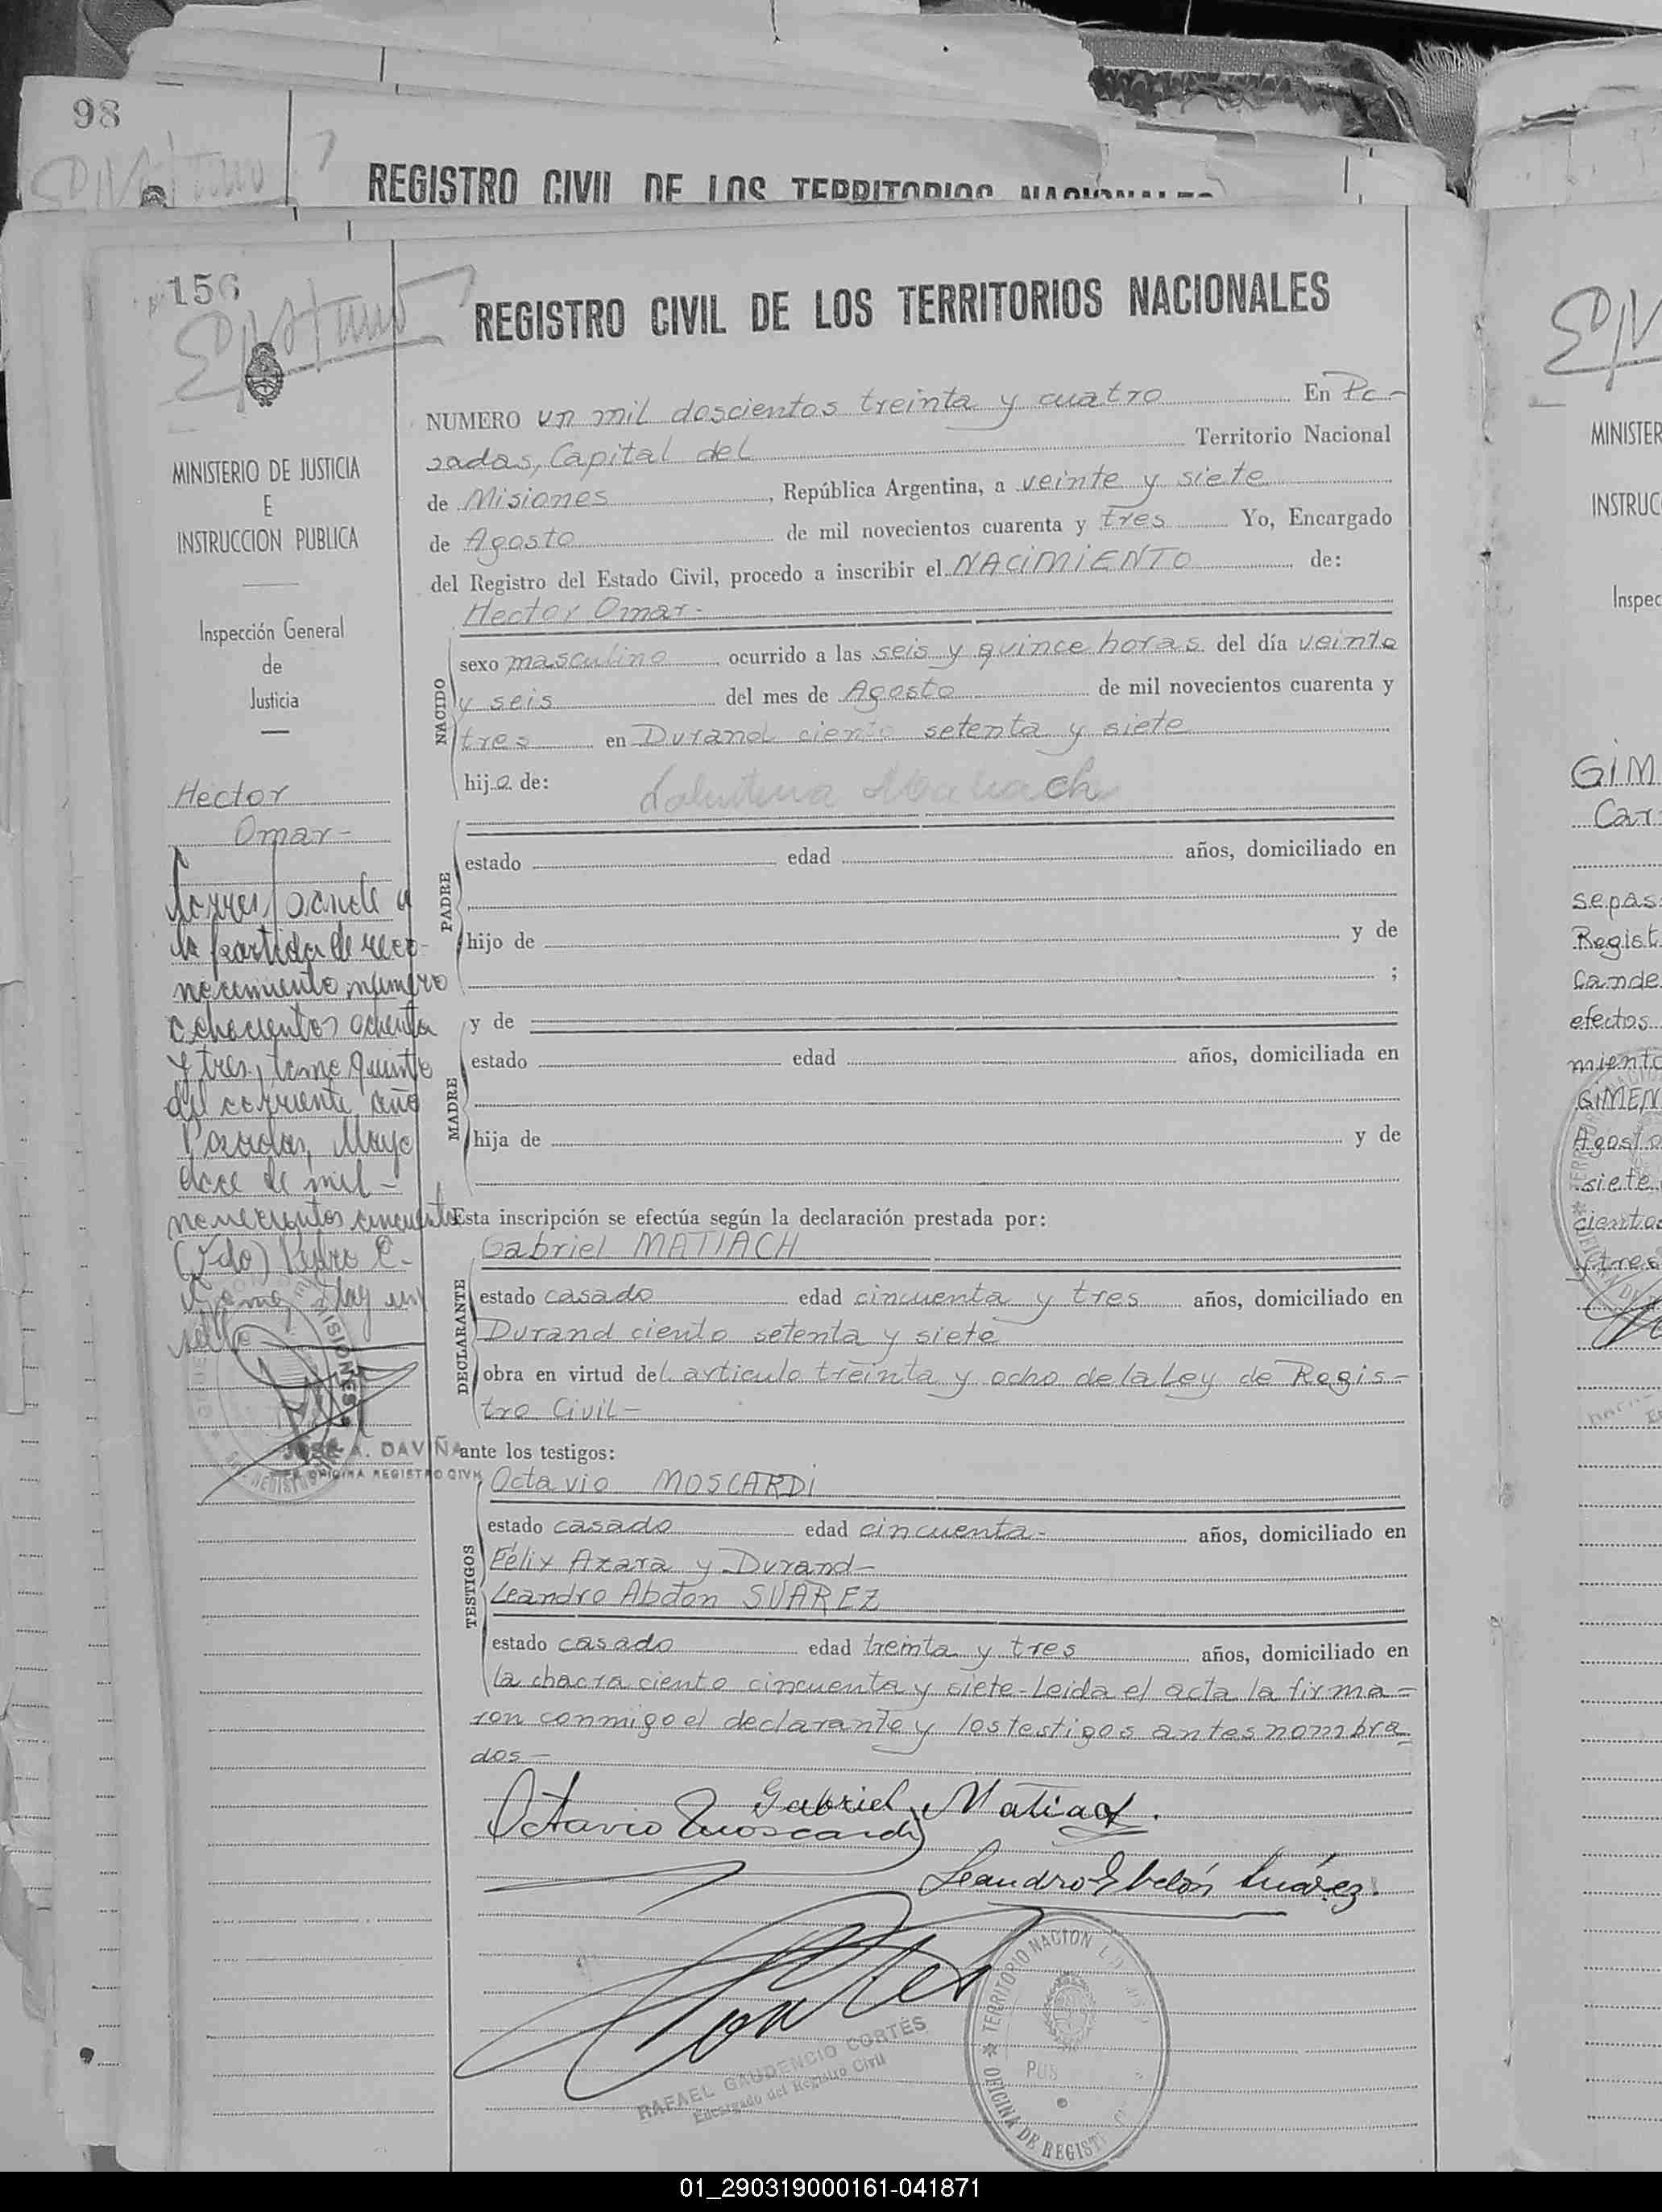 98
REGISTRO CIVIL DE LOS TERRITORIOS NACIONALES
156
REGISTRO CIVIL DE LOS TERRITORIOS NACIONALES
MINISTERIO DE JUSTICIA
E
INSTRUCCION PUBLICA
Inspección General
de
Justicia
Hector
Omar-
Corresponde a
la partida de reco-
nocimiento número
ochocientos ochenta
y tres, tomo quinto
del corriente año
Posadas, Mayo
doce de mil-
novecientos cincuenta
(Fdo) Pedro C.
hay un
sello
MISIONES
JOSE A. DAVIÑA
JEFE OFICINA REGISTRO CIVIL
NUMERO un mil doscientos treinta y cuatro En Po-
sadas, Capital del Territorio Nacional
de Misiones, República Argentina, a veinte y siete
de Agosto de mil novecientos cuarenta y tres Yo, Encargado
del Registro del Estado Civil, procedo a inscribir el NACIMIENTO de:
Hector Omar-
NACIDO
sexo masculino ocurrido a las seis y quince horas del día veinte
y seis del mes de Agosto de mil novecientos cuarenta y
tres en Durand ciento setenta y siete
hijo de:
PADRE
estado edad años, domiciliado en
hijo de y de
;
y de
MADRE
estado edad años, domiciliada en
hija de y de
Esta inscripción se efectúa según la declaración prestada por:
Gabriel MATIACH
DECLARANTE
estado casado edad cincuenta y tres años, domiciliado en
Durand ciento setenta y siete
obra en virtud del articulo treinta y ocho de la Ley de Regis-
tro Civil-
ante los testigos:
Octavio MOSCARDI
TESTIGOS
estado casado edad cincuenta- años, domiciliado en
Félix Azara y Durand-
Leandro Abdon SUAREZ
estado casado edad treinta y tres años, domiciliado en
la chacra ciento cincuenta y siete-Leida el acta la firma-
ron conmigo el declarante y los testigos antes nombra-
dos-
Gabriel Matiach.
Octavio Moscardi
Leandro Abdón Suárez.
RAFAEL GAUDENCIO CORTÉS
Encargado del Registro Civil
TERRITORIO NACIONAL
OFICINA DE REGIST
MINISTER
INSTRUC
Inspec
GIM
Car
sepas
Regist
Cande
efectos
miento
GIMEN
Agosto
siete
ciento
y tres
01_290319000161-041871